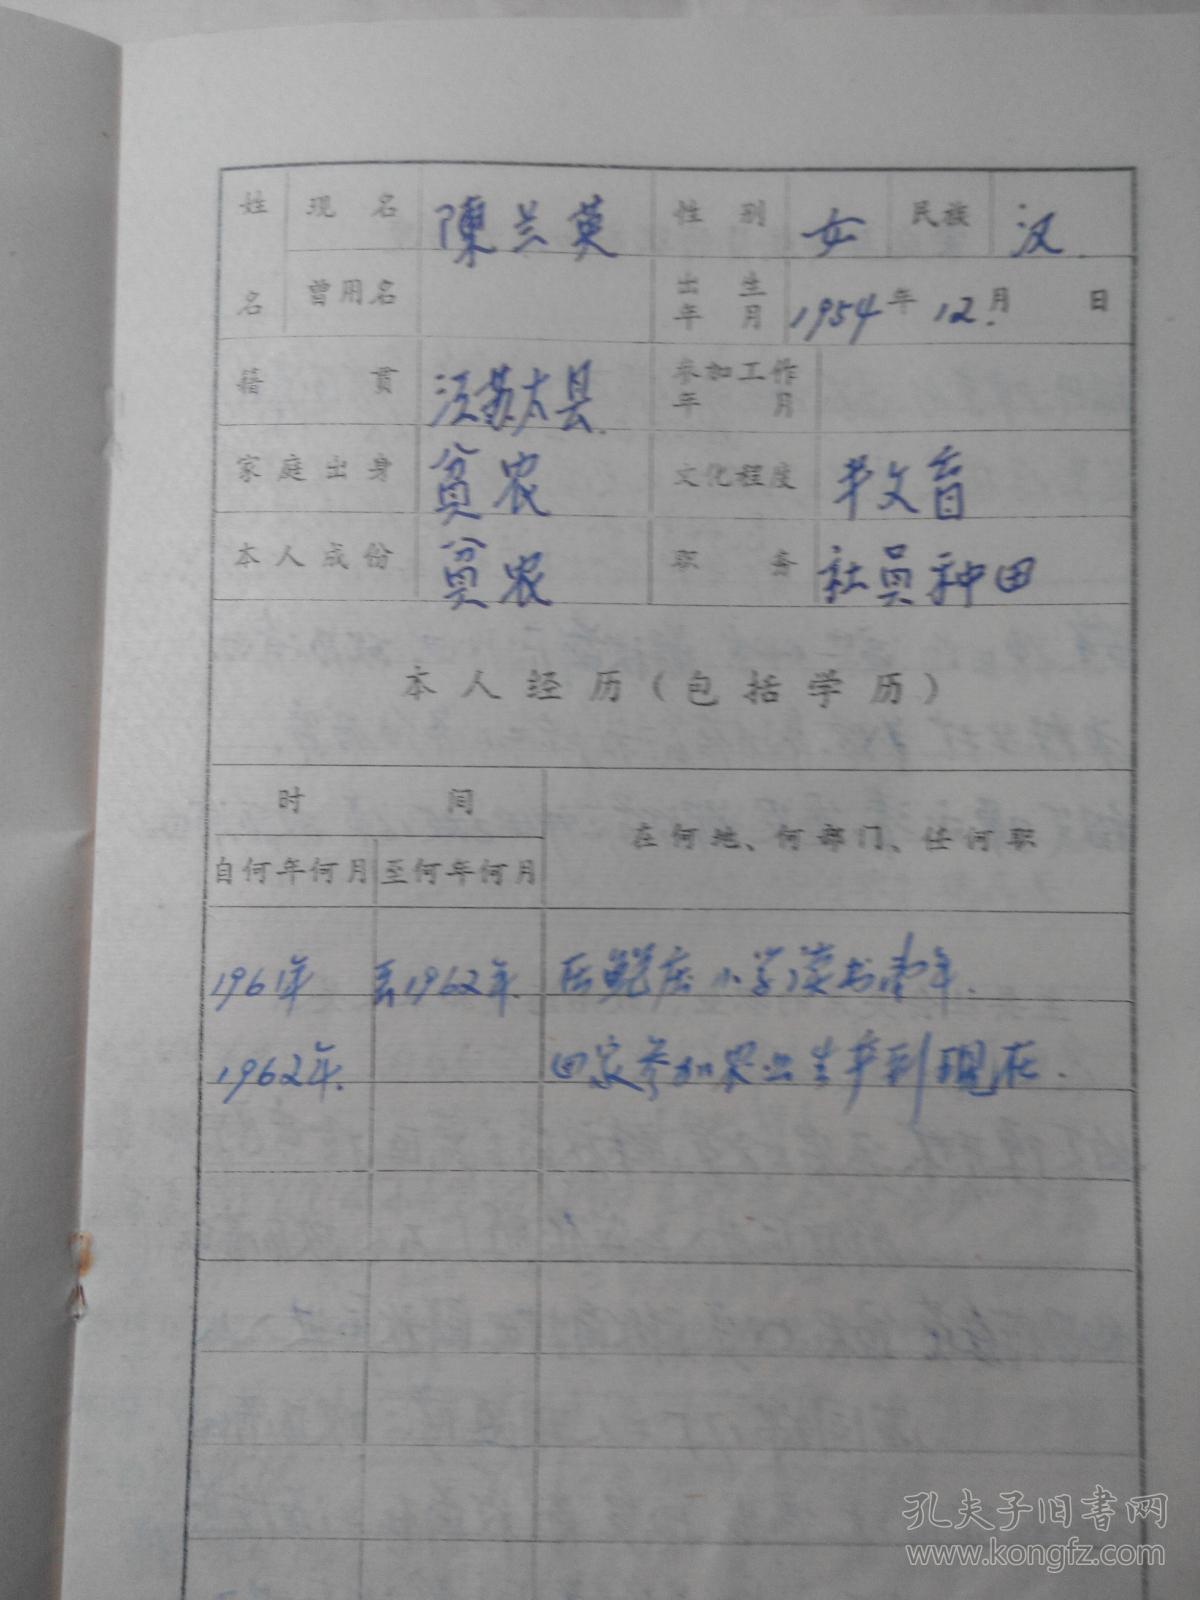 姓 现名 陳兰英 性别 女 民族 汉
名 曾用名 出生年月 1954年12月 日
籍贯 江苏太县 参加工作年月
家庭出身 贫农 文化程度 半文盲
本人成份 贫农 职务 社员种田
本人经历(包括学历)
时间 在何地、何部门、任何职
自何年何月 至何年何月
1961年 至1962年. 小学读书年.
1962年. 回家参加农业生产到现在.
孔夫子旧書网
www.kongfz.com